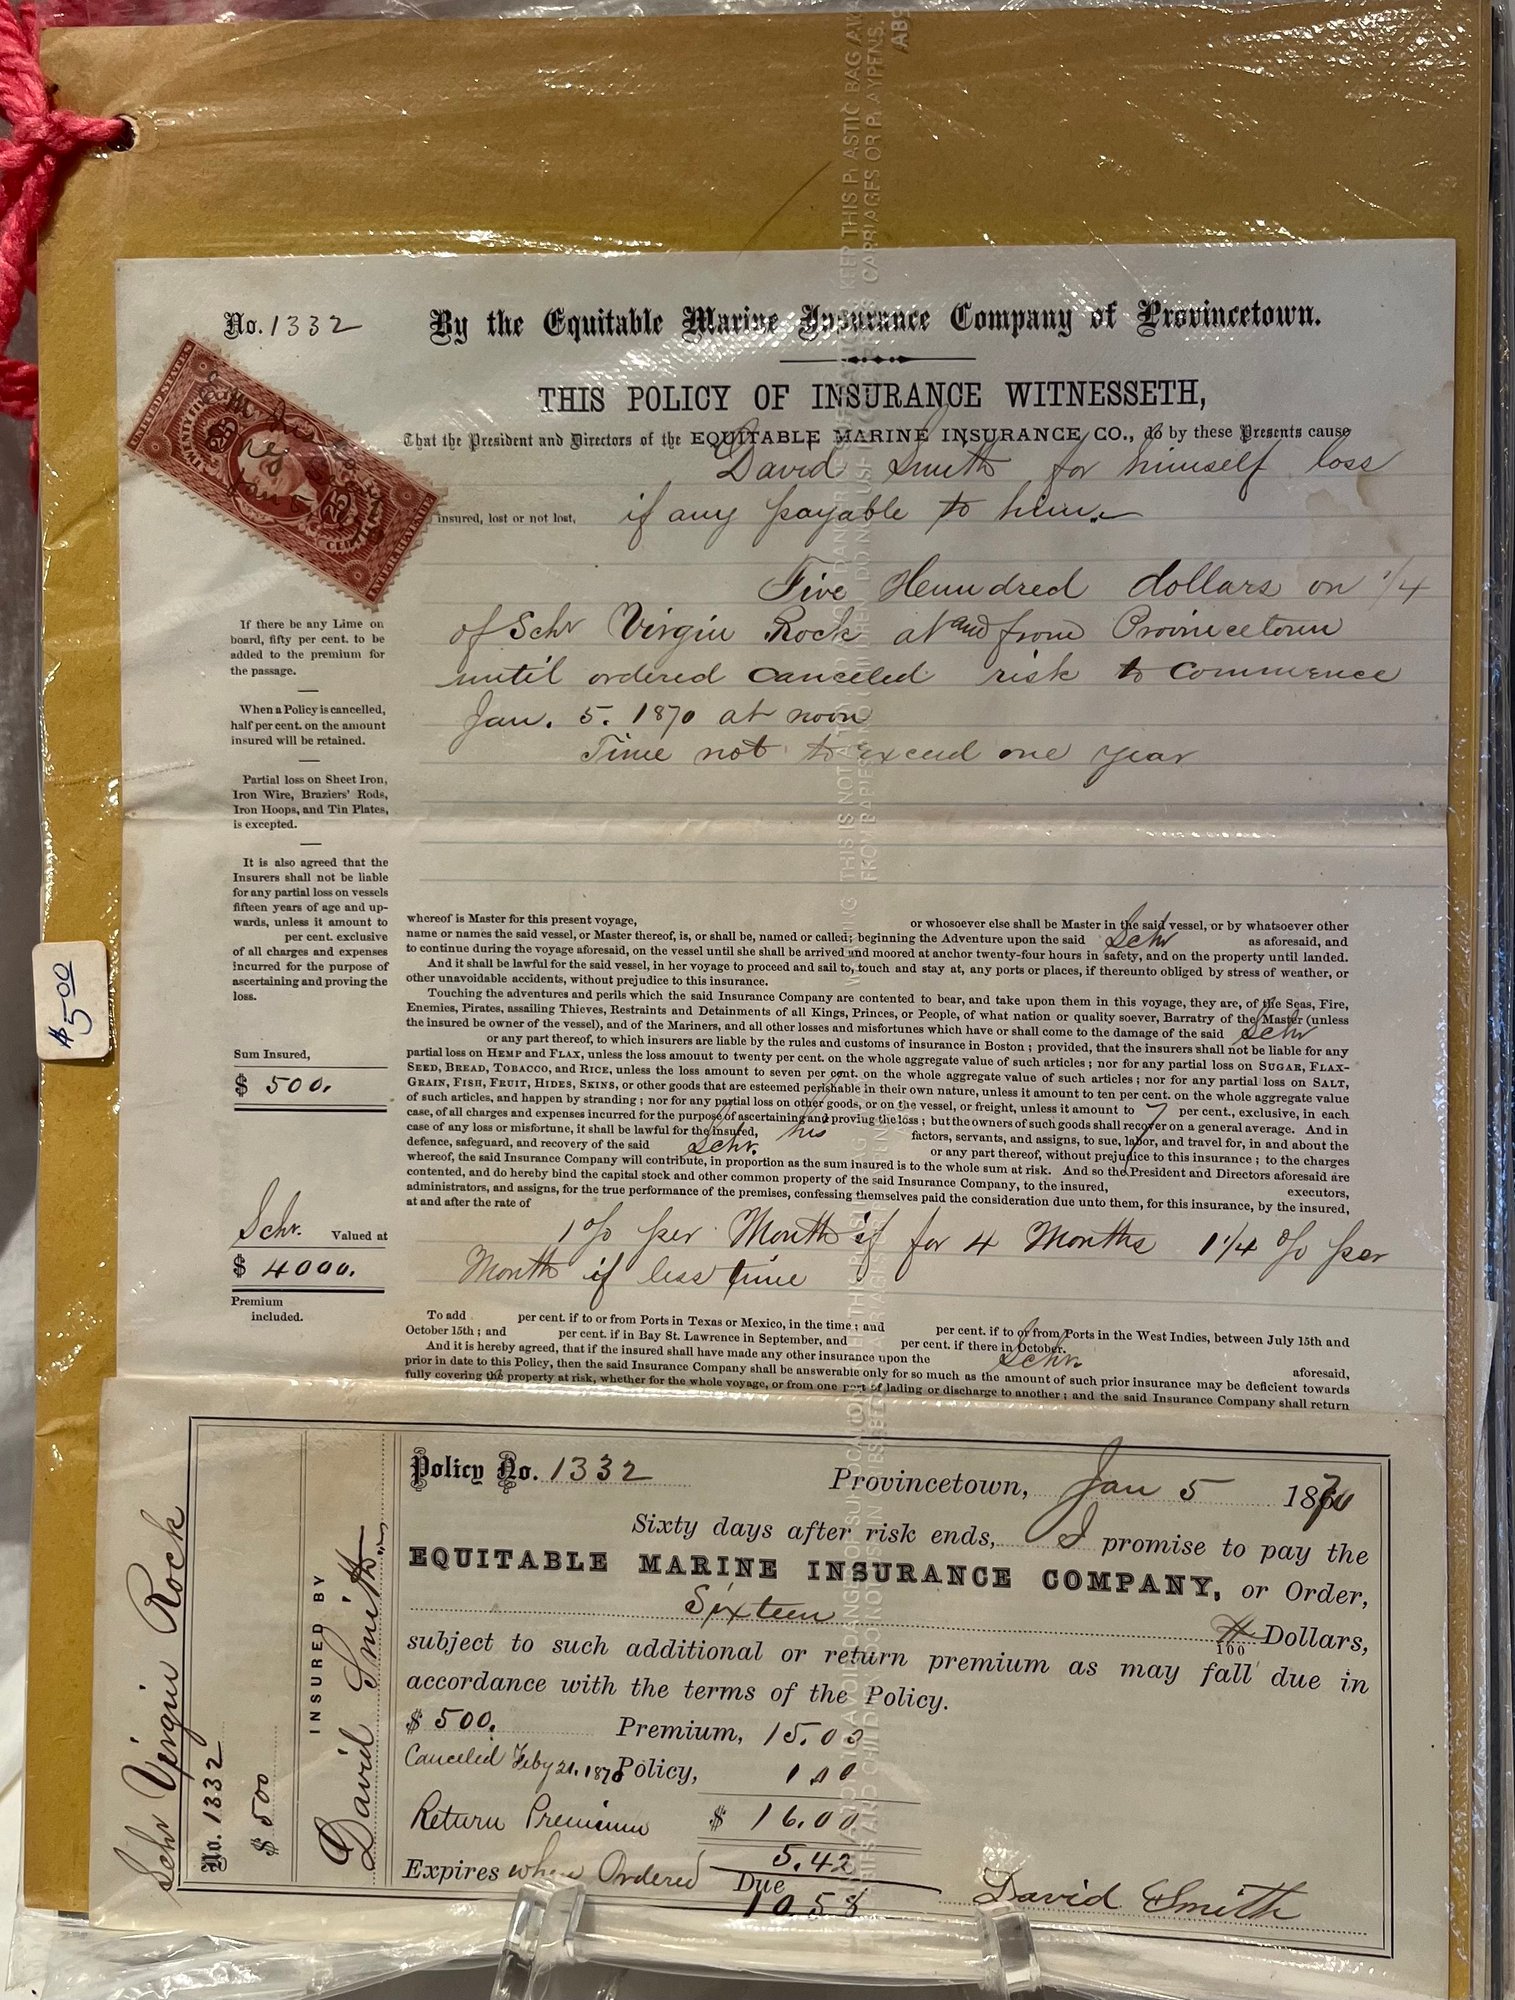 No. 1332
By the Equitable Marine Insurance Company of Provincetown.
THIS POLICY OF INSURANCE WITNESSETH,
That the President and Directors of the EQUITABLE MARINE INSURANCE CO., do by these Presents cause
David Smith for himself loss
insured, lost or not lost, if any payable to him.
Five Hundred dollars on 1/4
of Schr Virgin Rock at and from Provincetown
until ordered canceled risk to commence
Jan. 5. 1870 at noon
Time not to exceed one year
UNITED STATES
TWENTY FIVE
25
25
CENTS
INTER. REVENUE
Jan 5
If there be any Lime on
board, fifty per cent. to be
added to the premium for
the passage.
When a Policy is cancelled,
half per cent. on the amount
insured will be retained.
Partial loss on Sheet Iron,
Iron Wire, Braziers' Rods,
Iron Hoops, and Tin Plates,
is excepted.
It is also agreed that the
Insurers shall not be liable
for any partial loss on vessels
fifteen years of age and up-
wards, unless it amount to
per cent. exclusive
of all charges and expenses
incurred for the purpose of
ascertaining and proving the
loss.
$5.00
Sum Insured,
$ 500.
Schr. Valued at
$ 4000.
Premium
included.
whereof is Master for this present voyage, or whosoever else shall be Master in the said vessel, or by whatsoever other
name or names the said vessel, or Master thereof, is, or shall be, named or called; beginning the Adventure upon the said Schr as aforesaid, and
to continue during the voyage aforesaid, on the vessel until she shall be arrived and moored at anchor twenty-four hours in safety, and on the property until landed.
And it shall be lawful for the said vessel, in her voyage to proceed and sail to, touch and stay at, any ports or places, if thereunto obliged by stress of weather, or
other unavoidable accidents, without prejudice to this insurance.
Touching the adventures and perils which the said Insurance Company are contented to bear, and take upon them in this voyage, they are, of the Seas, Fire,
Enemies, Pirates, assailing Thieves, Restraints and Detainments of all Kings, Princes, or People, of what nation or quality soever, Barratry of the Master (unless
the insured be owner of the vessel), and of the Mariners, and all other losses and misfortunes which have or shall come to the damage of the said Schr
or any part thereof, to which insurers are liable by the rules and customs of insurance in Boston; provided, that the insurers shall not be liable for any
partial loss on HEMP and FLAX, unless the loss amount to twenty per cent. on the whole aggregate value of such articles; nor for any partial loss on SUGAR, FLAX-
SEED, BREAD, TOBACCO, and RICE, unless the loss amount to seven per cent. on the whole aggregate value of such articles; nor for any partial loss on SALT,
GRAIN, FISH, FRUIT, HIDES, SKINS, or other goods that are esteemed perishable in their own nature, unless it amount to ten per cent. on the whole aggregate value
of such articles, and happen by stranding; nor for any partial loss on other goods, or on the vessel, or freight, unless it amount to 7 per cent., exclusive, in each
case, of all charges and expenses incurred for the purpose of ascertaining and proving the loss; but the owners of such goods shall recover on a general average. And in
case of any loss or misfortune, it shall be lawful for the insured, his factors, servants, and assigns, to sue, labor, and travel for, in and about the
defence, safeguard, and recovery of the said Schr. or any part thereof, without prejudice to this insurance; to the charges
whereof, the said Insurance Company will contribute, in proportion as the sum insured is to the whole sum at risk. And so the President and Directors aforesaid are
contented, and do hereby bind the capital stock and other common property of the said Insurance Company, to the insured, executors,
administrators, and assigns, for the true performance of the premises, confessing themselves paid the consideration due unto them, for this insurance, by the insured,
at and after the rate of
1 % per Month if for 4 Months 1 1/4 % per
Month if less time
To add per cent. if to or from Ports in Texas or Mexico, in the time; and per cent. if to or from Ports in the West Indies, between July 15th and
October 15th; and per cent. if in Bay St. Lawrence in September, and per cent. if there in October.
And it is hereby agreed, that if the insured shall have made any other insurance upon the Schr. aforesaid,
prior in date to this Policy, then the said Insurance Company shall be answerable only for so much as the amount of such prior insurance may be deficient towards
fully covering the property at risk, whether for the whole voyage, or from one port of lading or discharge to another; and the said Insurance Company shall return
Schr Virgin Rock
No. 1332
$ 500
INSURED BY
David Smith
Policy No. 1332
Provincetown, Jan 5 1870
Sixty days after risk ends, I promise to pay the
EQUITABLE MARINE INSURANCE COMPANY, or Order,
Sixteen 100 Dollars,
subject to such additional or return premium as may fall due in
accordance with the terms of the Policy.
$ 500. Premium, 15.00
Canceled Feby 21. 1870 Policy, 1 00
Return Premium $ 16.00
5.42
Expires when Ordered Due
10.58
David Smith